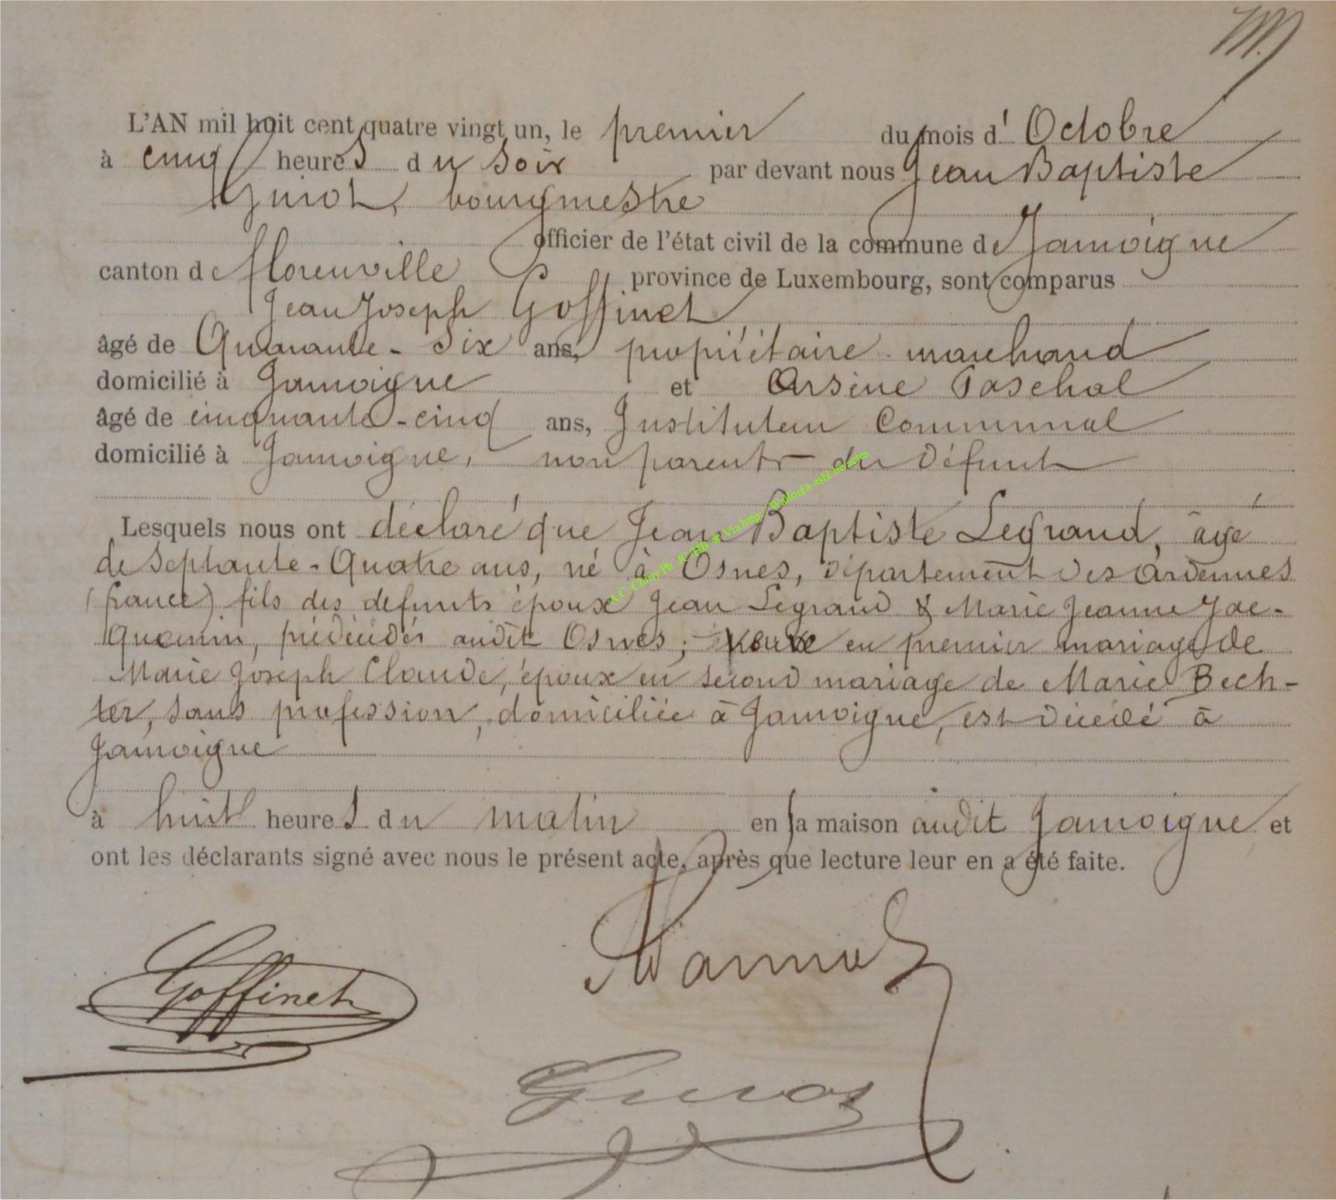 L'AN mil huit cent quatre vingt un, le premier du mois d' Octobre
à cinq heures du soir par devant nous Jean Baptiste
Guiot, bourgmestre
officier de l'état civil de la commune de Jamoigne
canton de florenville province de Luxembourg, sont comparus
Jean Joseph Goffinet
âgé de Quarante-Six ans, propriétaire marchand
domicilié à Jamoigne et Arsène Paschal
âgé de cinquante-cinq ans, Instituteur Communal
domicilié à Jamoigne, non parents du défunt
Lesquels nous ont déclaré que Jean Baptiste Legrand, âgé
de Septante-Quatre ans, né à Osnes, département des Ardennes
(france) fils des defunts époux Jean Legrand & Marie Jeanne Jac-
quemin, prédécédés audit Osnes; en premier mariage de
Marie Joseph Claude, époux en second mariage de Marie Bech-
ter, sans profession, domiciliée à Jamoigne, est décédé à
Jamoigne
à huit heures du matin en sa maison audit Jamoigne et
ont les déclarants signé avec nous le présent acte, après que lecture leur en a été faite.
Goffinet
Guiot